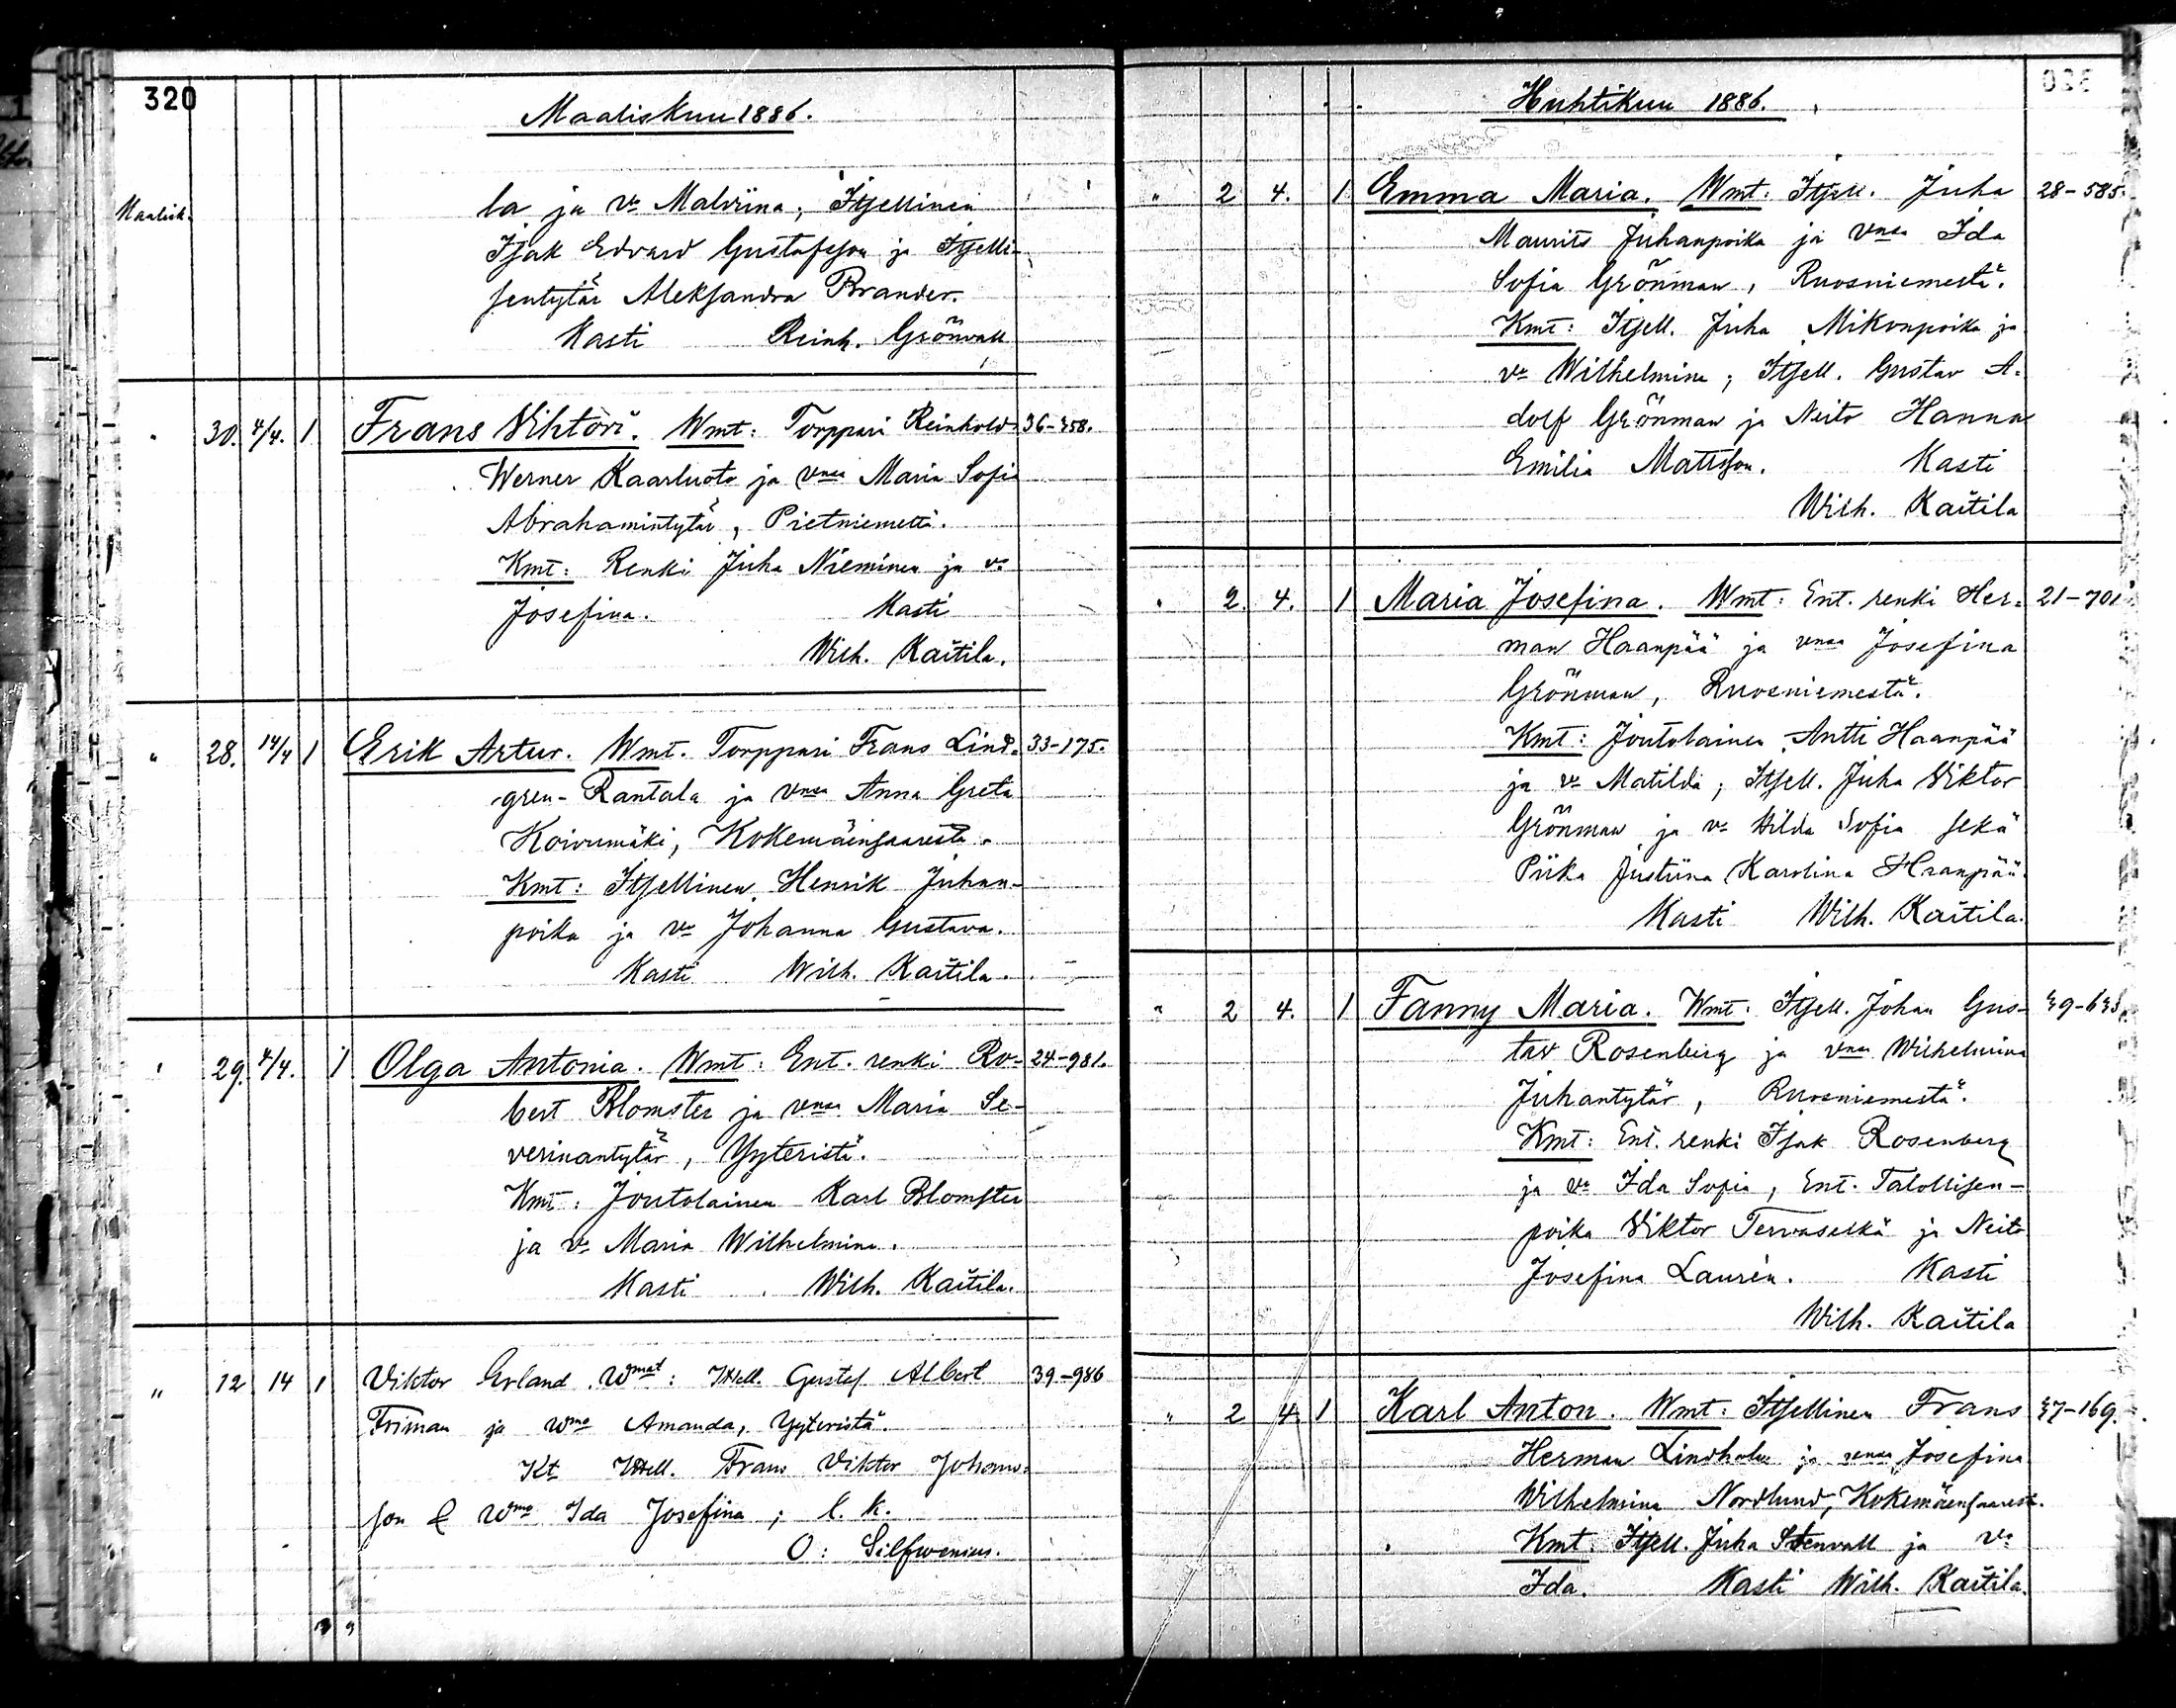 320
Maaliskuu 1886.
Maalisk.
la ja v:o Malviina; Itsellinen
Isak Edvard Gustafsson ja Itselli-
sentytär Aleksandra Brander.
Kasti Reinh. Grönvall
" 30. 4/4. 1 Frans Vihtori. Wmt: Torppari Reinhold 36-358.
Werner Kaarluoto ja vnsa Maria Sofia
Abrahamintytär, Pietniemeltä.
Kmt: Renki Juha Nieminen ja v:o
Josefina. Kasti
Wilh. Kaitila.
" 28. 14/4 1 Erik Artur. Wmt. Torppari Frans Lind- 33-175.
gren-Rantala ja vnsa Anna Greta
Koivumäki, Kokemäensaaresta.
Kmt: Itsellinen Henrik Juhan-
poika ja v:o Johanna Gustava.
Kasti Wilh. Kaitila.
" 29. 4/4. 1 Olga Antonia. Wmt: Ent. renki Ro- 24-981.
bert Blomster ja vnsa Maria Se-
verinantytär, Yyteristä.
Kmt: Joutolainen Karl Blomster
ja v:o Maria Wilhelmina.
Kasti Wilh. Kaitila.
" 12 14 1 Viktor Erland. Wmat: Itsell. Gustaf Albert 39-986
Friman ja Wmo Amanda, Yyteristä.
Kt Itsell. Frans Viktor Johans-
son & Wmo Ida Josefina; l. k.
O: Silfwenius.
Huhtikuu 1886.
" 2 4. 1 Emma Maria. Wmt: Itsell. Juha 28-585.
Maurits Juhanpoika ja vnsa Ida
Sofia Grönman, Ruosniemestä.
Kmt: Itsell. Juha Mikonpoika ja
v:o Wilhelmina; Itsell. Gustav A-
dolf Grönman ja Neito Hanna
Emilia Mattsson. Kasti
Wilh. Kaitila
" 2. 4. 1 Maria Josefina. Wmt: Ent. renki Her- 21-701.
man Haanpää ja vnsa Josefina
Grönman, Ruosniemestä.
Kmt: Joutolainen Antti Haanpää
ja v:o Matilda; Itsell. Juha Viktor
Grönman ja v:o Hilda Sofia sekä
Piika Justiina Karolina Haanpää.
Kasti Wilh. Kaitila.
" 2 4. 1 Fanny Maria. Wmt: Itsell. Johan Gus-
tav Rosenberg ja vnsa Wilhelmina
Juhantytär, Ruosniemestä.
Kmt: Ent. renki Isak Rosenberg
ja v:o Ida Sofia, Ent. Talollisen-
poika Viktor Tervaselkä ja Neito
Josefina Laurén. Kasti
Wilh. Kaitila
" 2 4 1 Karl Anton. Wmt: Itsellinen Frans 37-169.
Herman Lindholm ja vnsa Josefina
Wilhelmina Nordlund, Kokemäensaarest.
Kmt: Itsell. Juha Stenvall ja v:o
Ida. Kasti Wilh. Kaitila.